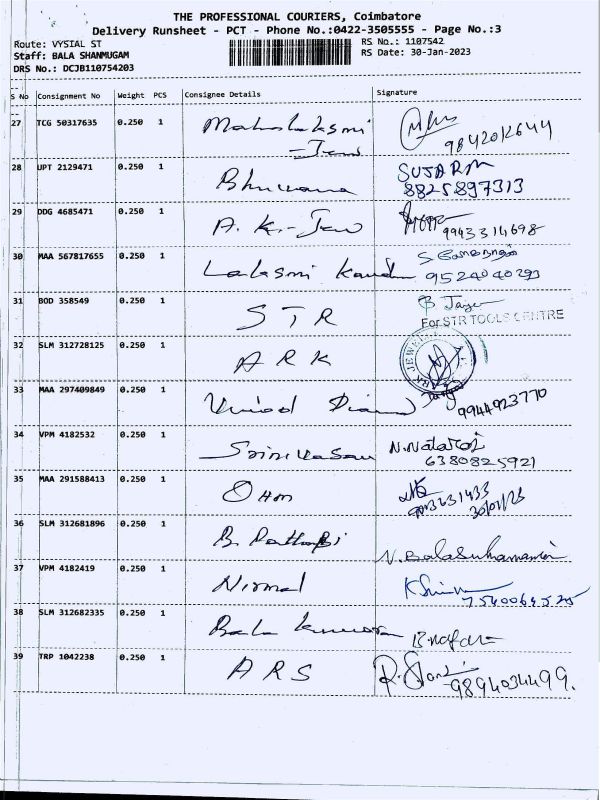 THE PROFESSIONAL COURIERS, Coimbatore
Delivery Runsheet - PCT - Phone No.:0422-3505555 - Page No.:3
Route: VYSIAL ST
RS No.: 1107542
Staff: BALA SHANMUGAM
RS Date: 30-Jan-2023
DRS No.: DCJB110754203
S No Consignment No Weight PCS Consignee Details Signature
27 TCG 50317635 0.250 1 Mahalaksmi
- Jew 9842012644
28 UPT 2129471 0.250 1 Bhuvana SUJARM
8825897313
29 DDG 4685471 0.250 1 A. K. - Jew
9943314698
30 MAA 567817655 0.250 1 Lalaksmi
9524040293
31 BOD 358549 0.250 1 STR
For STR TOOLS CENTRE
32 SLM 312728125 0.250 1 ARK
ARK JEWELL
33 MAA 297409849 0.250 1
9944923770
34 VPM 4182532 0.250 1 Srinivasan N. Nataraj
6380825921
35 MAA 291588413 0.250 1 Ohm
30/01/23
36 SLM 312681896 0.250 1 B. Pattabi
N. Balasubramanian
37 VPM 4182419 0.250 1 Nirmal
7540064525
38 SLM 312682335 0.250 1 Bala
39 TRP 1042238 0.250 1 ARS
9894034499.